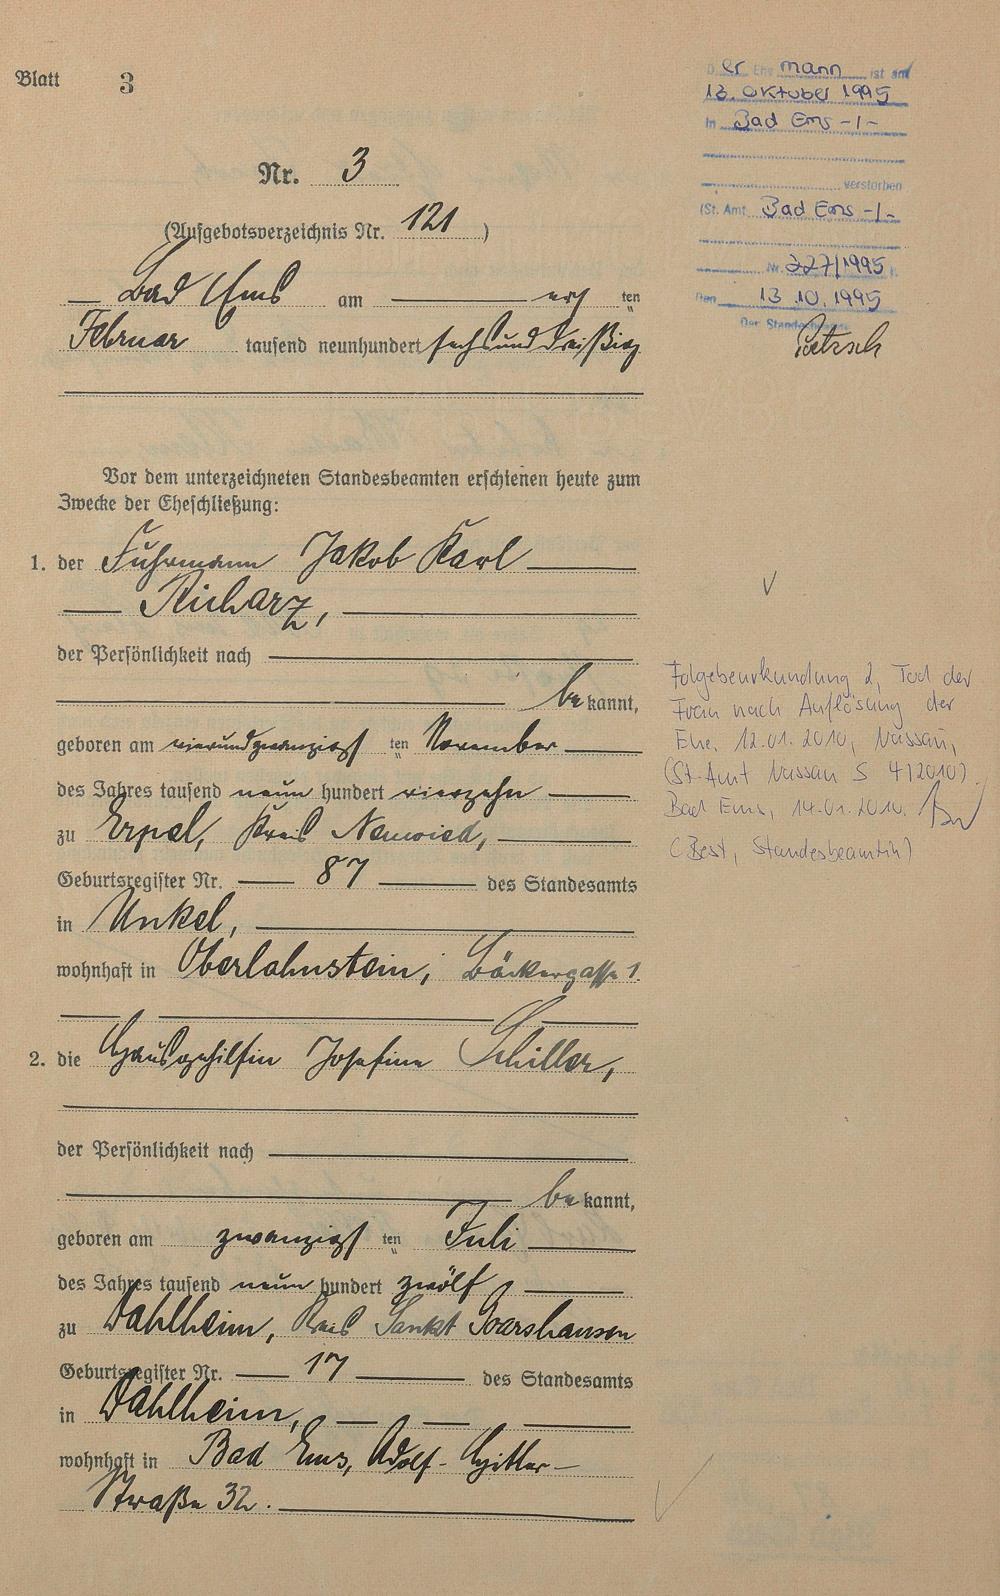 Blatt 3
Nr. 3
(Aufgebotsverzeichnis Nr. 121)
Bad Ems am ersten
Februar tausend neunhundert sechsunddreißig
Vor dem unterzeichneten Standesbeamten erschienen heute zum
Zwecke der Eheschließung:
1. der Fuhrmann Jakob Karl
Richarz,
der Persönlichkeit nach
bekannt,
geboren am vierundzwanzigsten November
des Jahres tausend neun hundert vierzehn
zu Erpel, Kreis Neuwied,
Geburtsregister Nr. 87 des Standesamts
in Unkel,
wohnhaft in Oberlahnstein, Böckergasse 1
2. die Hausgehilfin Josefine Schiller,
der Persönlichkeit nach
bekannt,
geboren am zwanzigsten Juli
des Jahres tausend neun hundert zwölf
zu Dahlheim, Kreis Sankt Goarshausen
Geburtsregister Nr. 17 des Standesamts
in Dahlheim,
wohnhaft in Bad Ems, Adolf-Hitler-
Straße 32.
Der Ehemann ist am
13. Oktober 1995
in Bad Ems -/-
verstorben
(St. Amt Bad Ems -/-
Nr. 227/1995).
Den 13.10.1995
Der Standesbeamte
Folgebeurkundung 2, Tod der
Frau nach Auflösung der
Ehe. 12.01.2010, Nassau,
(St.-Amt Nassau S 4/2010)
Bad Ems, 14.01.2010.
(Best, Standesbeamtin)